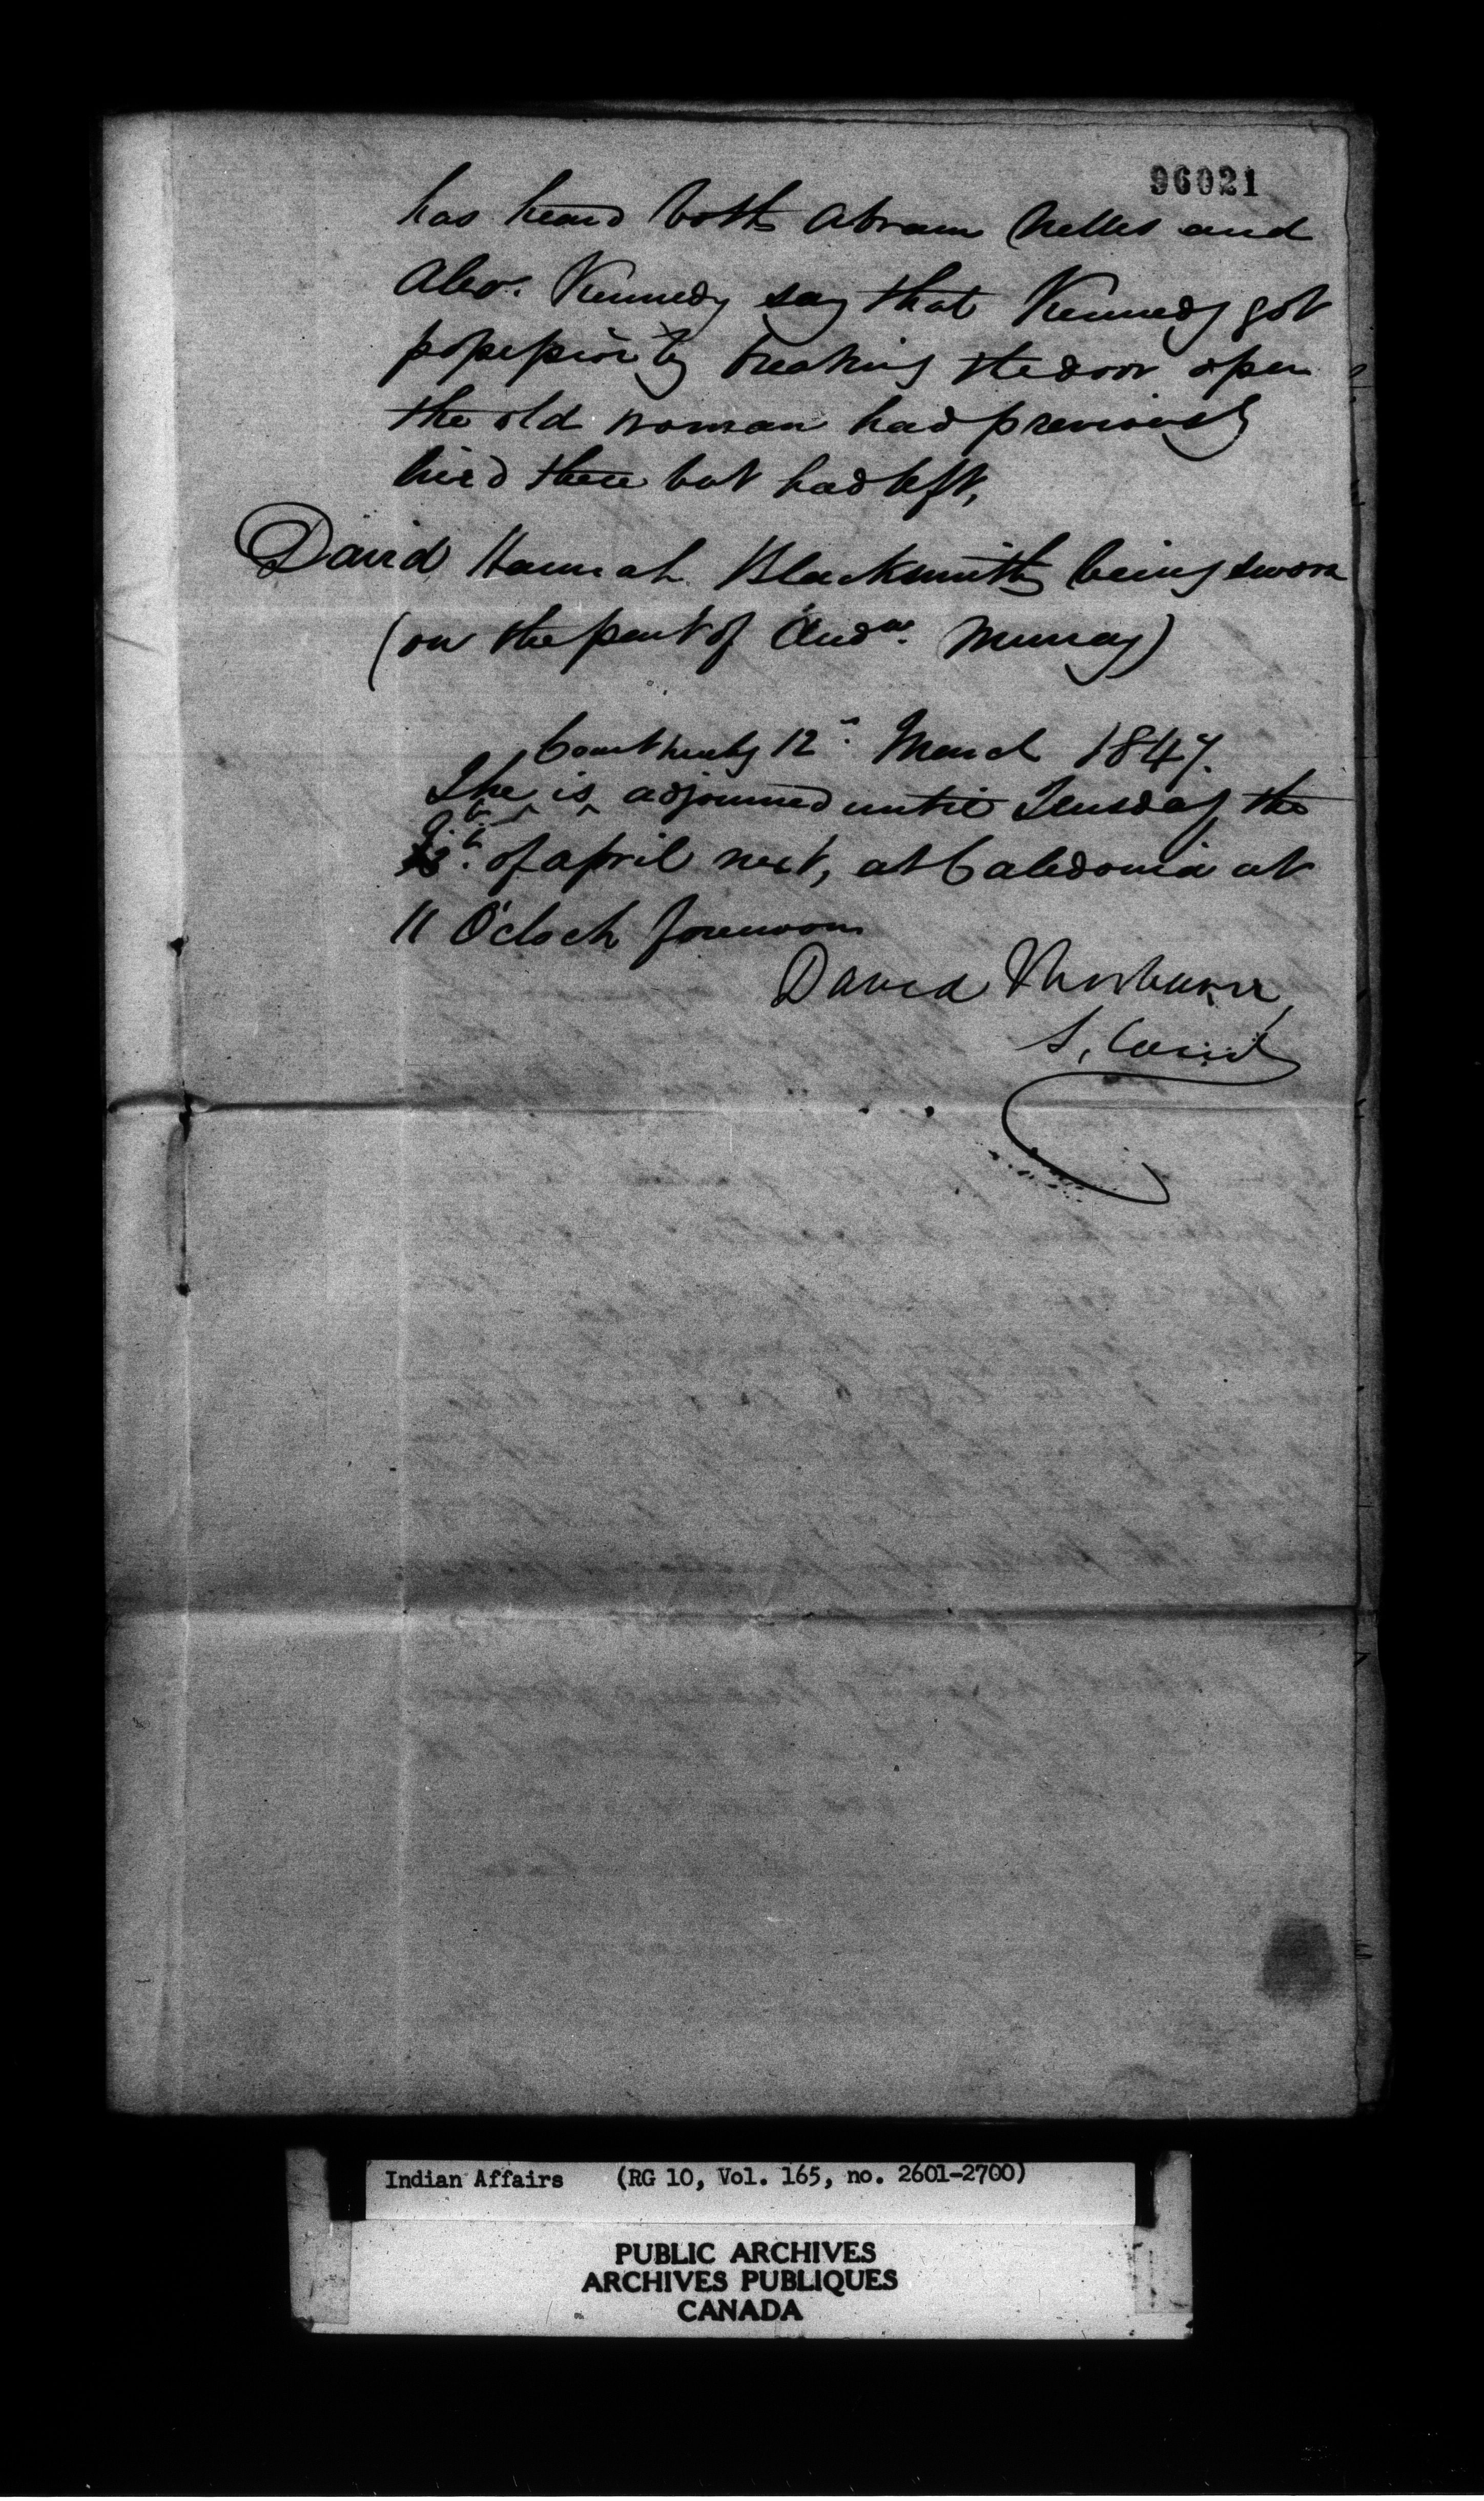 96021
has heard both Abram Nelles and
Alexr. Kennedy say that Kennedy got
possession by breaking the door open
the old woman had previously
liv'd there but had left,
David Hannah Blacksmith being sworn
(on the part of Andw. Murray)
Court 12th March 1847.
The is adjourned until Tuesday the
of April next, at Caledonia at
11 O'Clock forenoon
David Thorburn,
S, Comr
Indian Affairs (RG 10, Vol. 165, no. 2601-2700)
PUBLIC ARCHIVES
ARCHIVES PUBLIQUES
CANADA